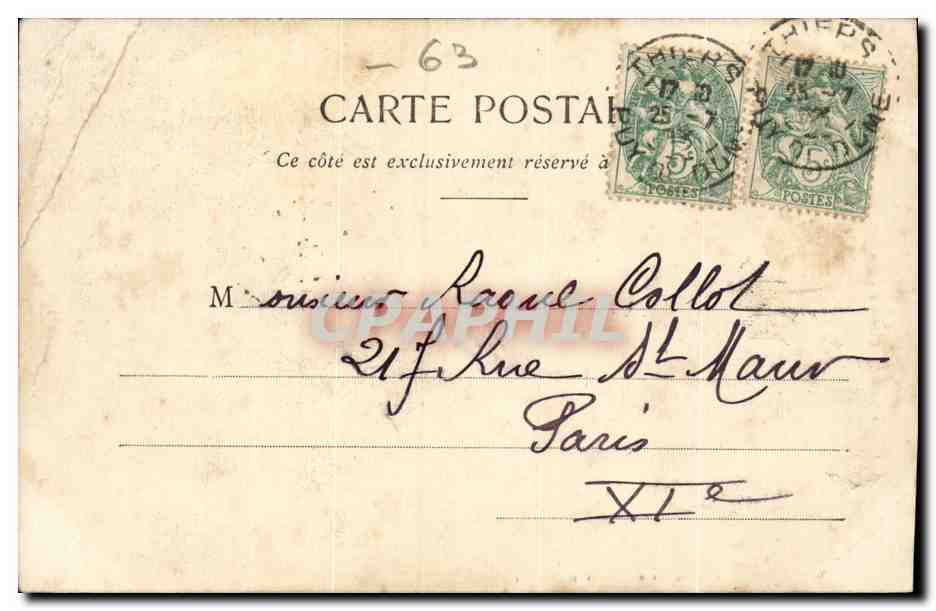 63
CARTE POSTAL
Ce côté est exclusivement réservé à
THIERS
17 10
25 -7
PUY DOME
5
POSTES
THIERS
17 10
25 -7
PUY DE DOME
5
POSTES
Monsieur Raoul Collot
CPAPHIL
217 Rue St Maur
Paris
XIe